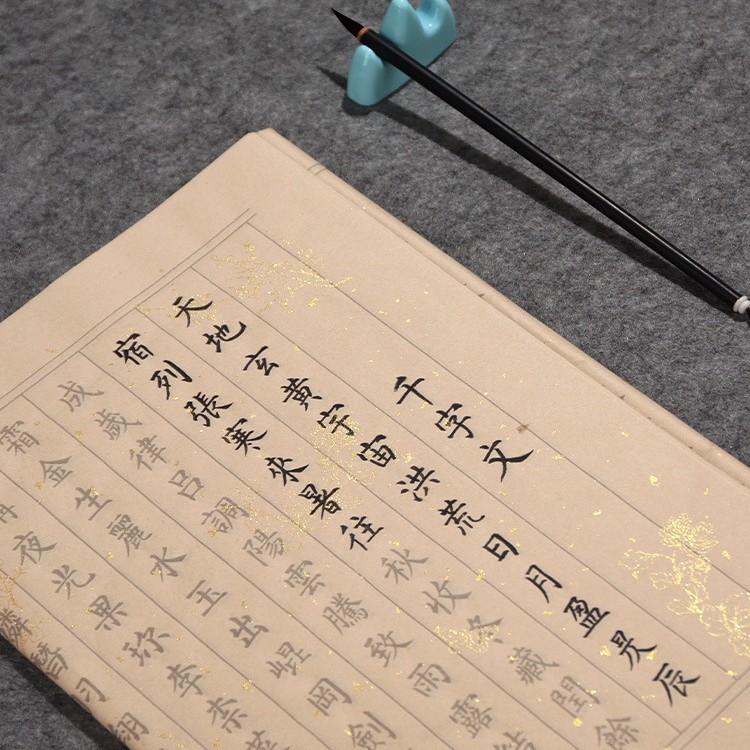 千字文
天地玄黃宇宙洪荒日月盈昃辰
宿列張寒來暑往秋收冬藏閏餘
成歲律呂調陽雲騰致雨露結
霜金生麗水玉出崐岡劍
夜光果珎李柰
鱗潛羽翔